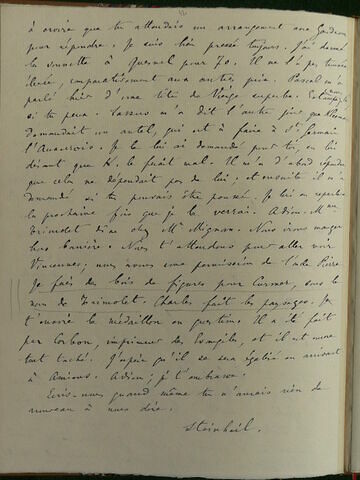 à croire que tu attendais un arrangement avec Gardeur
pour répondre. Je suis bien pressé toujours. J'ai donné
la sonnette à Quesnel pour 70. Il ne l'a pas trouvée
chère, comparativement aux autres prix. Pascal m'a
parlé hier d'une tête de Vierge superbe.
si tu peux. Lassus m'a dit l'autre jour que
demandait un autel, qui est à faire à St Germain
l'Auxerrois. Je le lui ai demandé pour toi, en lui
disant que K. le ferait mal. Il m'a d'abord répondu
que cela ne dépendait pas de lui ; et ensuite il m'a
demandé si tu pouvais être poussé. Je lui en reparlerai
la prochaine fois que je le verrai. Adieu. Mme
Trimolet dîne chez Mr Mignon. Nous irons manger
hors barrière. Nous t'attendons pour aller voir
Vincennes ; nous avons une permission de l'ade Pierre
Je fais des bois de figures pour Curmer, sous le
nom de Trimolet. Charles fait les paysages. Je
t'envoie le médaillon en question. Il a été fait
par Corbon, imprimeur des Évangiles, et il est encore
tout taché. J'espère qu'il se sera égalisé en arrivant
à Amiens. Adieu ; je t'embrasse.
Écris-nous quand même tu n'aurais rien de
nouveau à nous dire.
Steinheil.